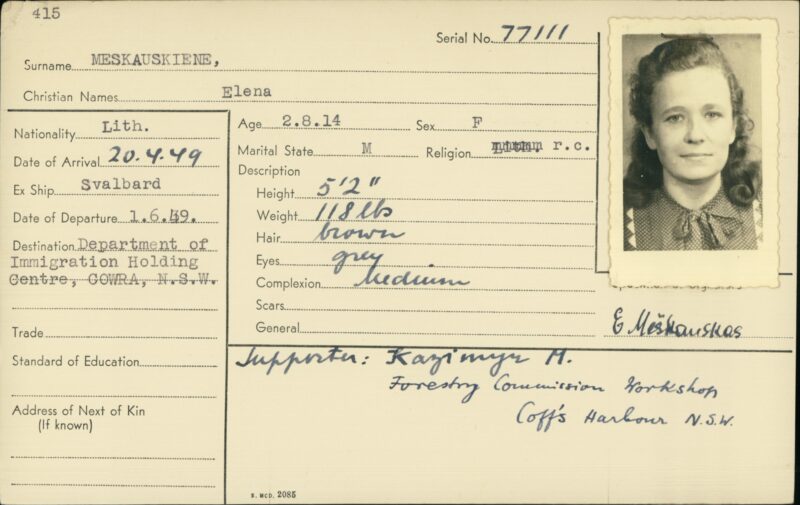 415
Serial No. 77111
Surname MESKAUSKIENE,
Christian Names Elena
Nationality Lith.
Date of Arrival 20.4.49
Ex Ship Svalbard
Date of Departure 1.6.49.
Destination Department of
Immigration Holding
Centre, COWRA, N.S.W.
Trade
Standard of Education
Address of Next of Kin
(If known)
Age 2.8.14 Sex F
Marital State M Religion Lith. r.c.
Description
Height 5'2"
Weight 118 lbs
Hair brown
Eyes grey
Complexion Medium
Scars
General
E Meškauskas
Supporter: Kazimyr M.
Forestry Commission Workshop
Coff's Harbour N.S.W.
S. MCD. 2085